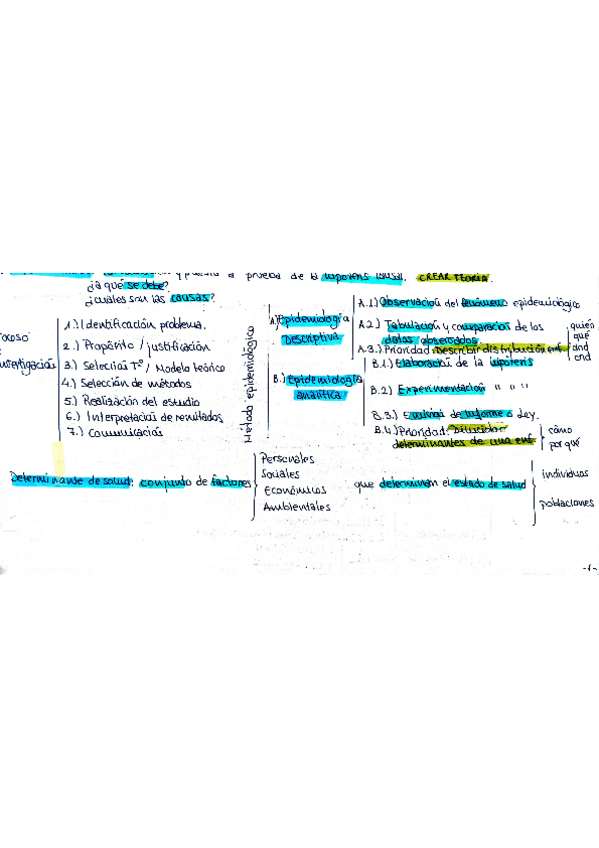 y puesta a prueba de la hipótesis causal. CREAR TEORIA.
¿a qué se debe?
¿cuáles son las causas?
Proceso investigación
1.) Identificación problema.
2.) Propósito / justificación
3.) Selección Tº / Modelo teórico
4.) Selección de métodos
5.) Realización del estudio
6.) Interpretación de resultados
7.) Comunicación
Método epidemiológico
A.) Epidemiología Descriptiva
A.1) Observación del fenómeno epidemiológico
A.2) Tabulación y comparación de los datos observados
A.3.) Prioridad: Describir distribución enf.
quién
qué
dnd
cnd
B.) Epidemiología analítica
B.1.) Elaboración de la hipótesis
B.2) Experimentación " " "
B.3.) Emisión de informe o ley.
B.4.) Prioridad: Dilucidar determinantes de una enf.
cómo
por qué
Determinante de salud: conjunto de factores
Personales
Sociales
Económicos
Ambientales
que determinan el estado de salud
individuos
poblaciones
-1-